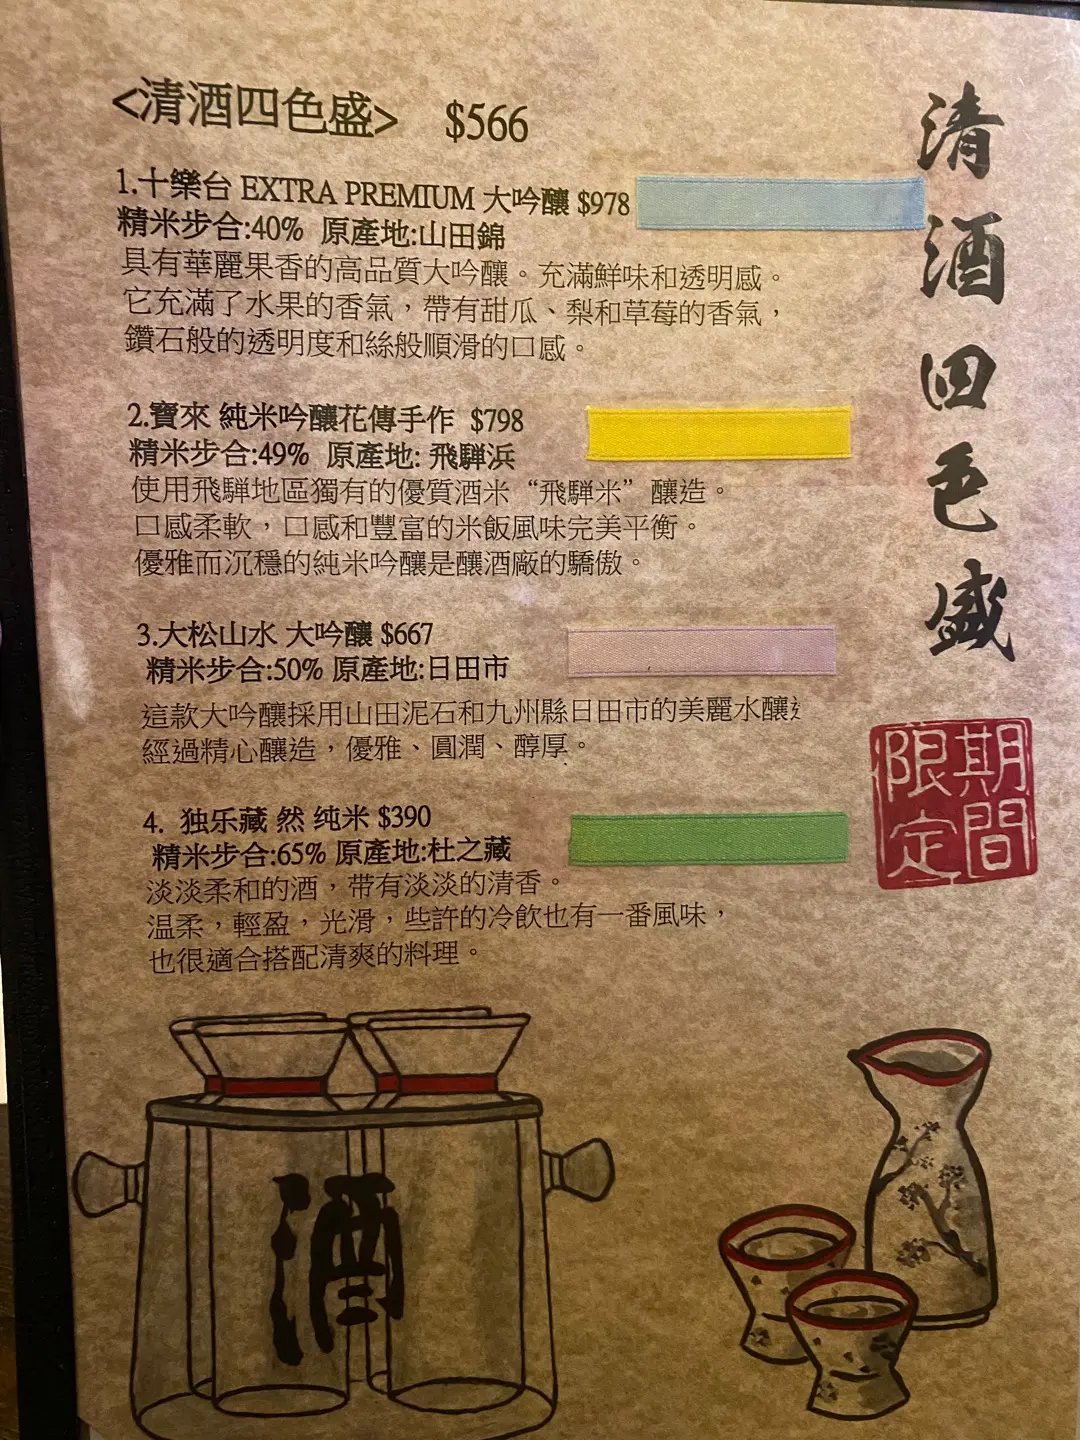 <清酒四色盛> $566
1.十樂台 EXTRA PREMIUM 大吟釀 $978
精米步合:40% 原產地:山田錦
具有華麗果香的高品質大吟釀。充滿鮮味和透明感。
它充滿了水果的香氣，帶有甜瓜、梨和草莓的香氣，
鑽石般的透明度和絲般順滑的口感。
2.寶來 純米吟釀花傳手作 $798
精米步合:49% 原產地: 飛驒浜
使用飛驒地區獨有的優質酒米“飛驒米”釀造。
口感柔軟，口感和豐富的米飯風味完美平衡。
優雅而沉穩的純米吟釀是釀酒廠的驕傲。
3.大松山水 大吟釀 $667
精米步合:50% 原產地:日田市
這款大吟釀採用山田泥石和九州縣日田市的美麗水釀
經過精心釀造，優雅、圓潤、醇厚。
4. 独乐藏 然 纯米 $390
精米步合:65% 原產地:杜之藏
淡淡柔和的酒，带有淡淡的清香。
温柔，輕盈，光滑，些許的冷飲也有一番風味，
也很適合搭配清爽的料理。
清酒四色盛
期間限定
酒